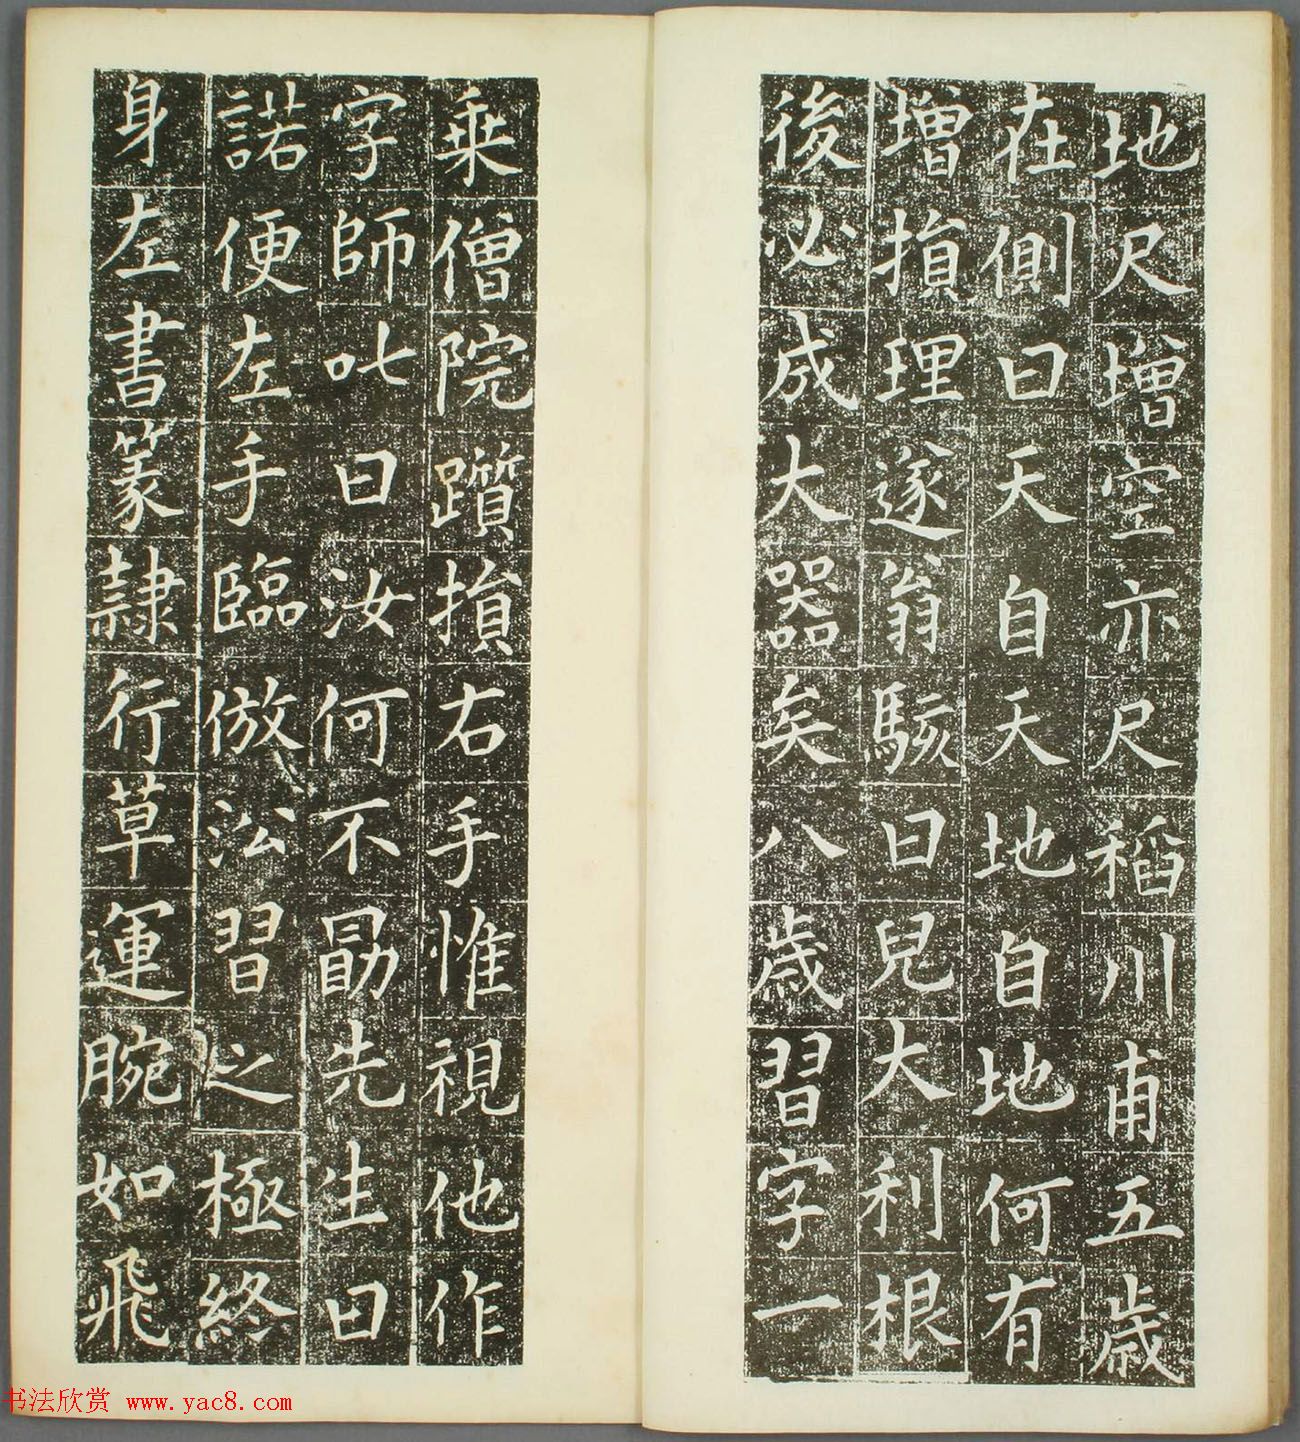 地尺增空亦尺稻川甫五歲
在側曰天自天地自地何有
增損理遂翁駭曰兒大利根
後必成大器矣八歲習字一
乘僧院躓損右手惟視他作
字師叱曰汝何不勗先生曰
諾便左手臨倣泓習之極終
身左書篆隷行草運腕如飛
书法欣赏 www.yac8.com